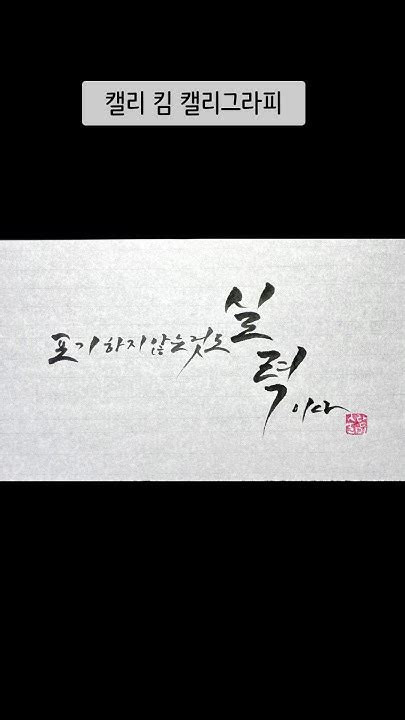 캘리 킴 캘리그라피
포기하지않는것도
실
력이다